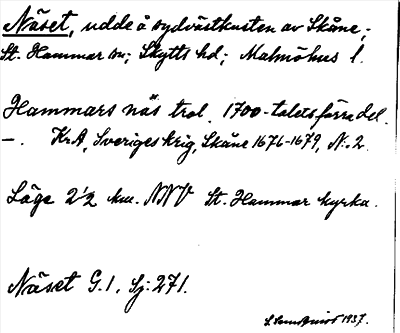 Näset, udde å sydvästkusten av Skåne;
St. Hammar sn; Skytts hd; Malmöhus l.
Hammars näs trol. 1700-talets förra del.
–. KrA, Sveriges krig, Skåne 1676-1679, N:2.
Läge 2 1/2 km. NNV St. Hammar kyrka.
Näset G.1. Sj:271.
1937.